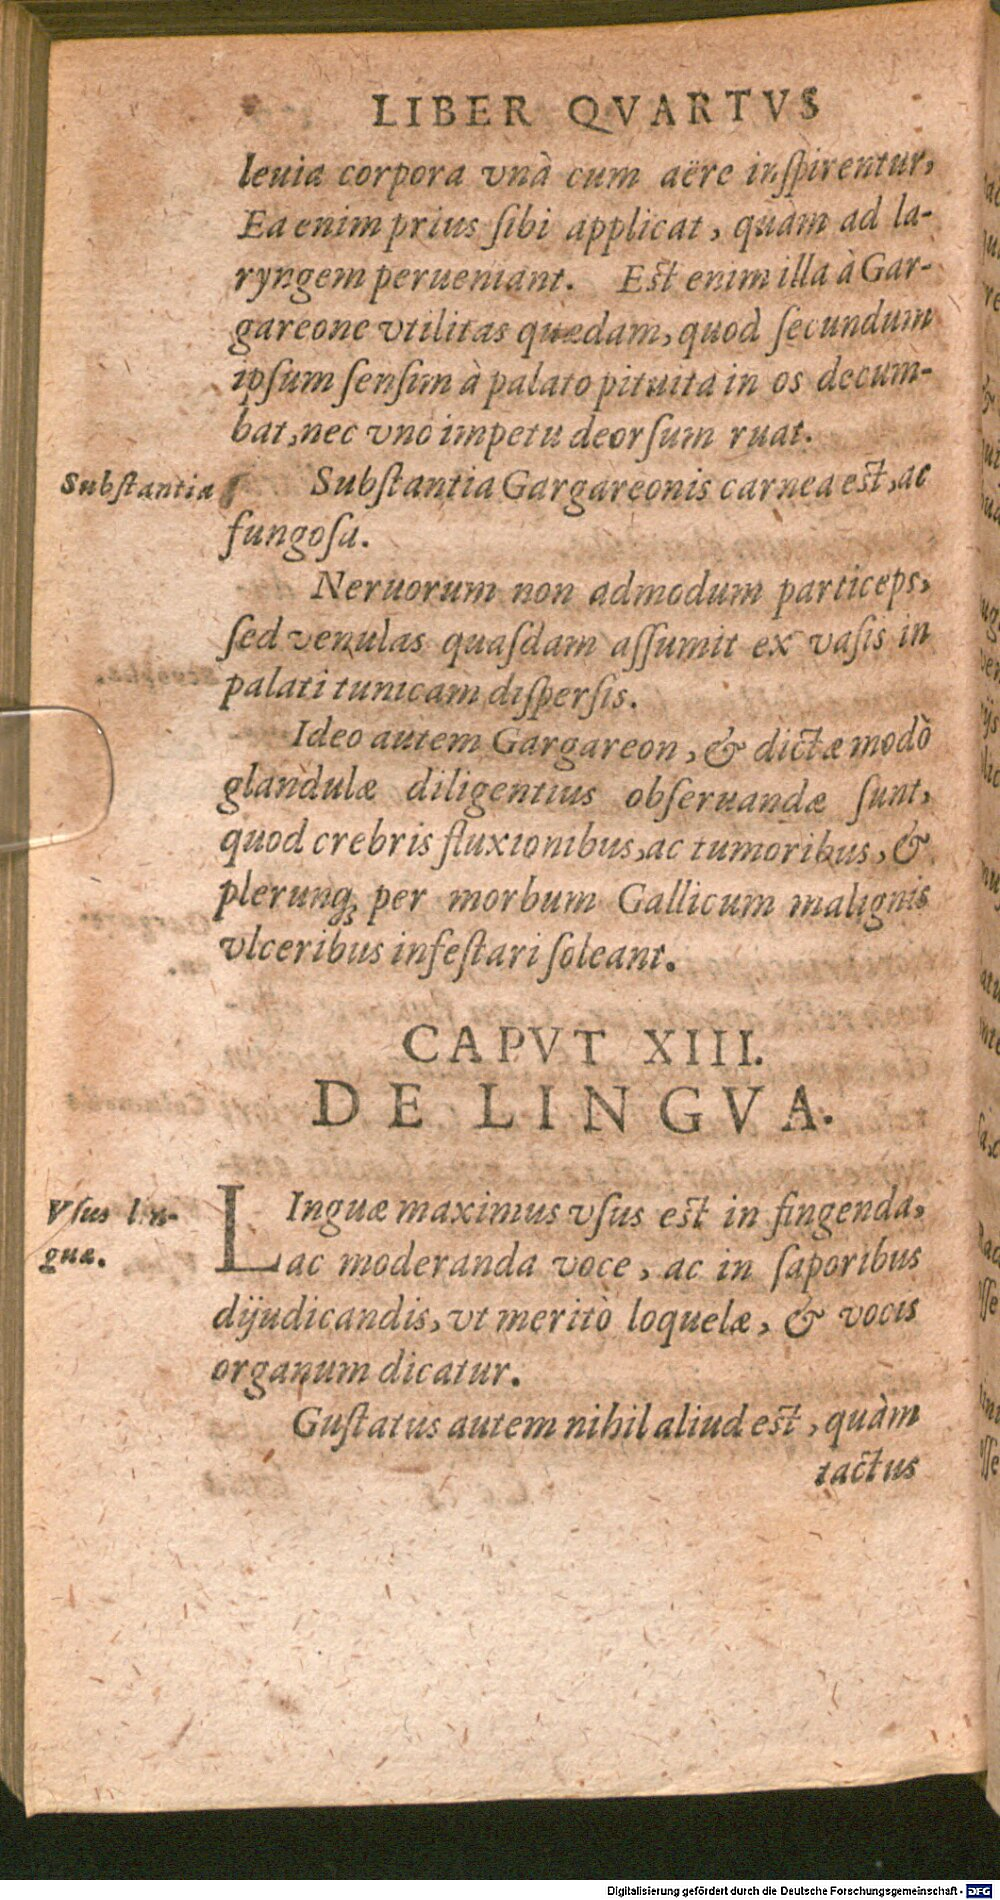 LIBER QVARTVS
leuia corpora vnà cum aëre inſpirentur,
Ea enim prius ſibi applicat, quàm ad la-
ryngem perueniant. Eſt enim illa à Gar-
gareone vtilitas quædam, quòd ſecundum
ipſum ſenſim à palato pituita in os decum-
bat, nec vno impetu deorſum ruat.
Subſtantia
Subſtantia Gargareonis carnea eſt, ac
fungoſa.
Neruorum non admodum particeps,
ſed venulas quaſdam aſſumit ex vaſis in
palati tunicam diſperſis.
Ideo autem Gargareon, & dictæ modò
glandulæ diligentius obſeruandæ ſunt,
quod crebris fluxionibus, ac tumoribus, &
plerunq; per morbum Gallicum malignis
vlceribus infeſtari ſoleant.
CAPVT XIII.
DE LINGVA.
Vſus lin-
guæ.
LInguæ maximus vſus eſt in fingenda,
ac moderanda voce, ac in ſaporibus
dijudicandis, vt meritò loquelæ, & vocis
organum dicatur.
Guſtatus autem nihil aliud eſt, quàm
tactus
Digitalisierung gefördert durch die Deutsche Forschungsgemeinschaft - DFG